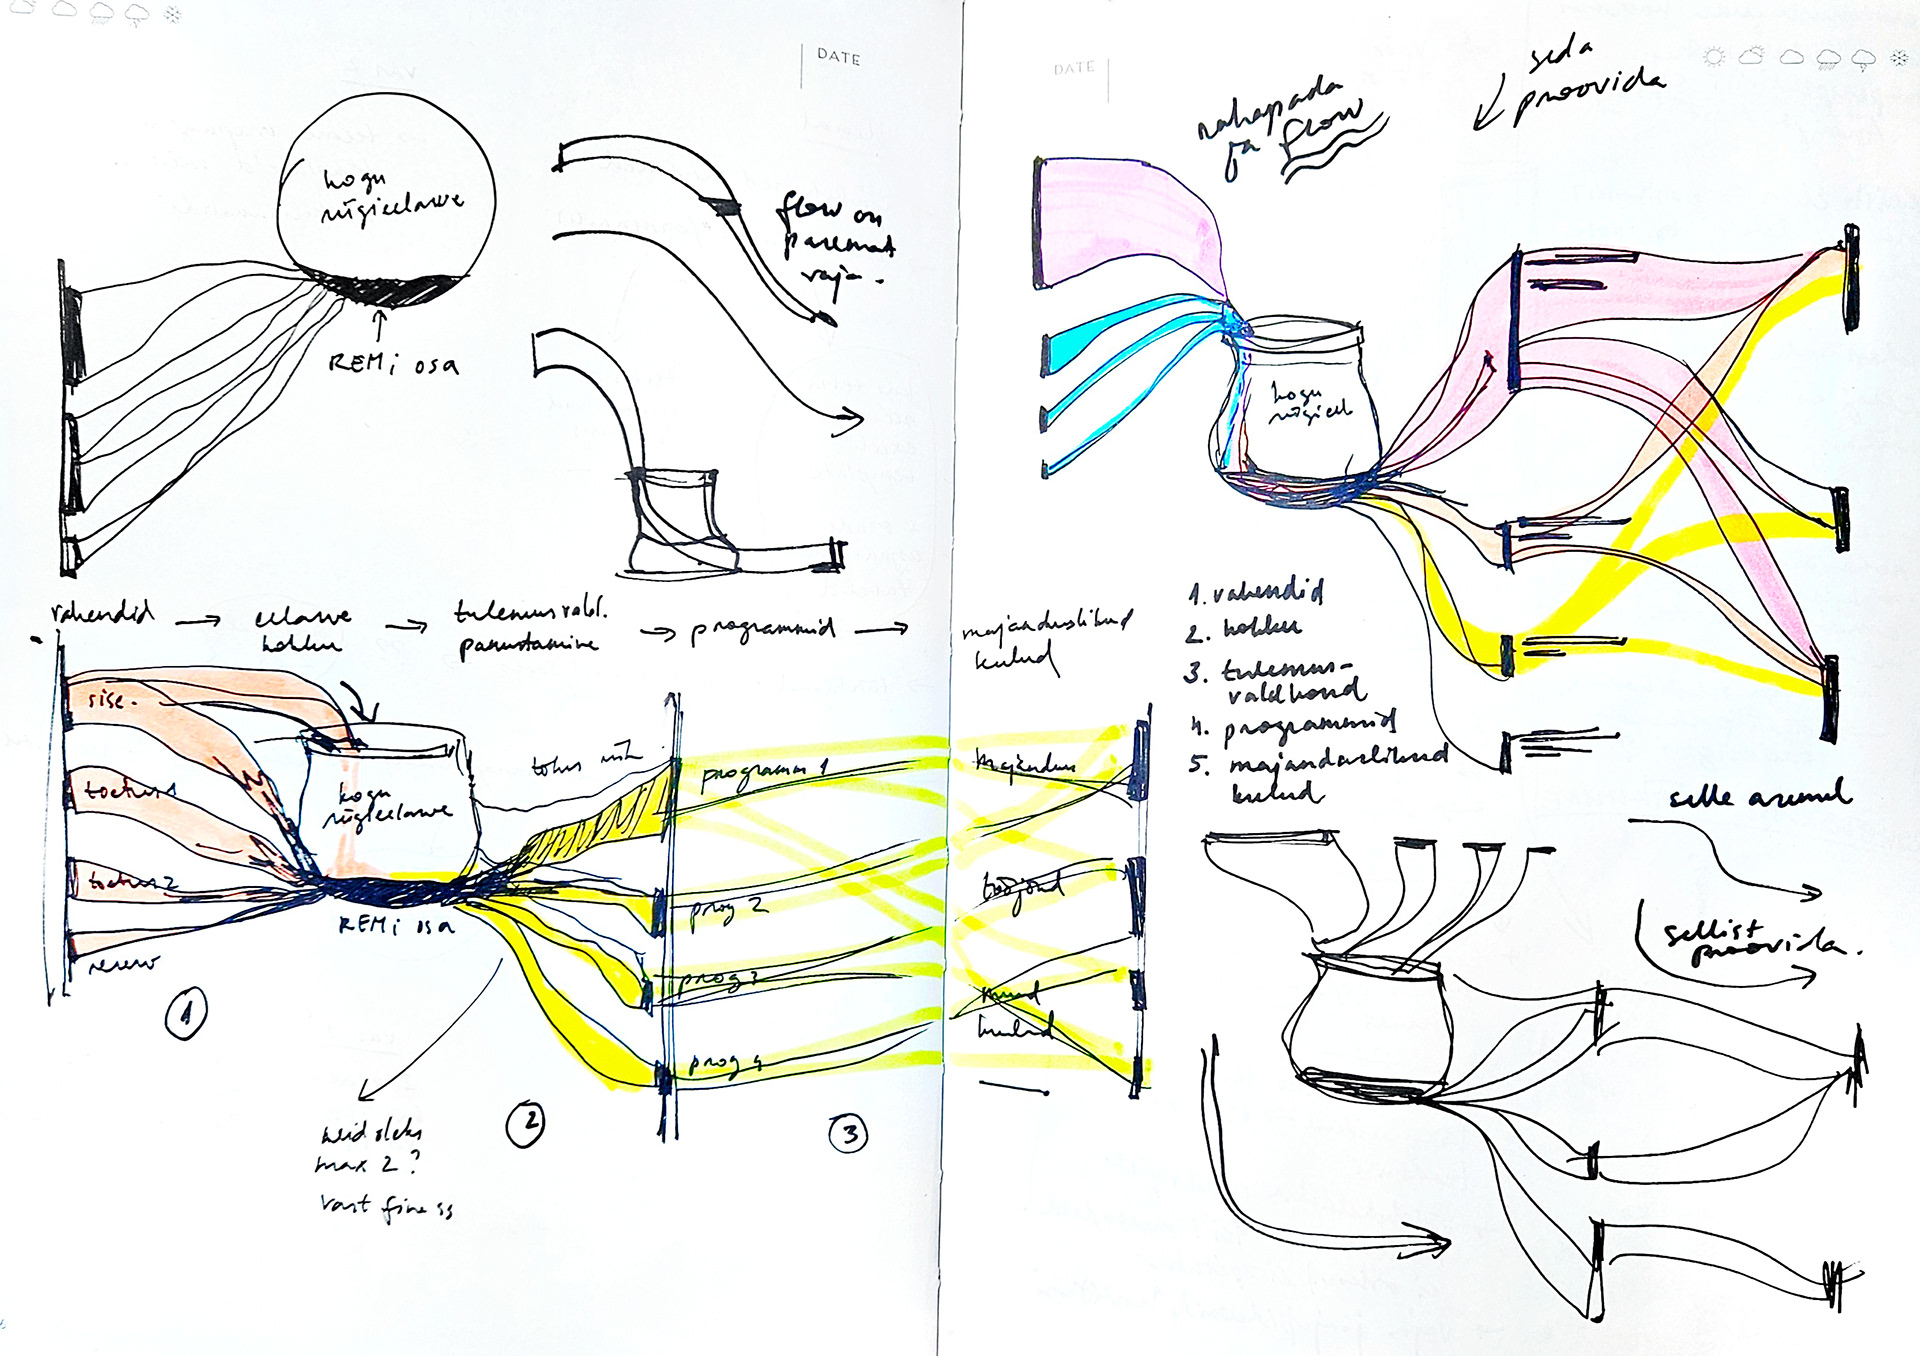 DATE
kogu
riigieelarve
REMi osa
flow on
paremat
vaja.
vahendid → eelarve kokku → tulemusvald. panustamine → programmid → majanduslikud kulud
sise.
toetus 1
toetus 2
kogu
riigieelarve
REMi osa
programm 1
prog 2
prog 3
prog 4
majandus
tööjõud
muud
kulud
1
2
3
max 2?
DATE
rahapada
ja flow
seda
proovida
kogu
riigieel
1. vahendid
2. kokku
3. tulemus-
valdkond
4. programmid
5. majanduslikud
kulud
selle asemel
sellist
proovida.